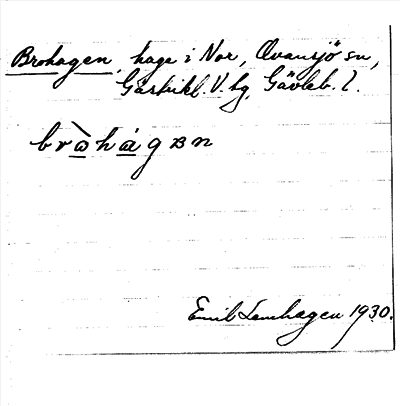 Brohagen, hage i Nor, Ovansjö sn,
Gästrikl. V. tg, Gävleb. l.
bròhágɐn
Emil Lenhagen 1930.